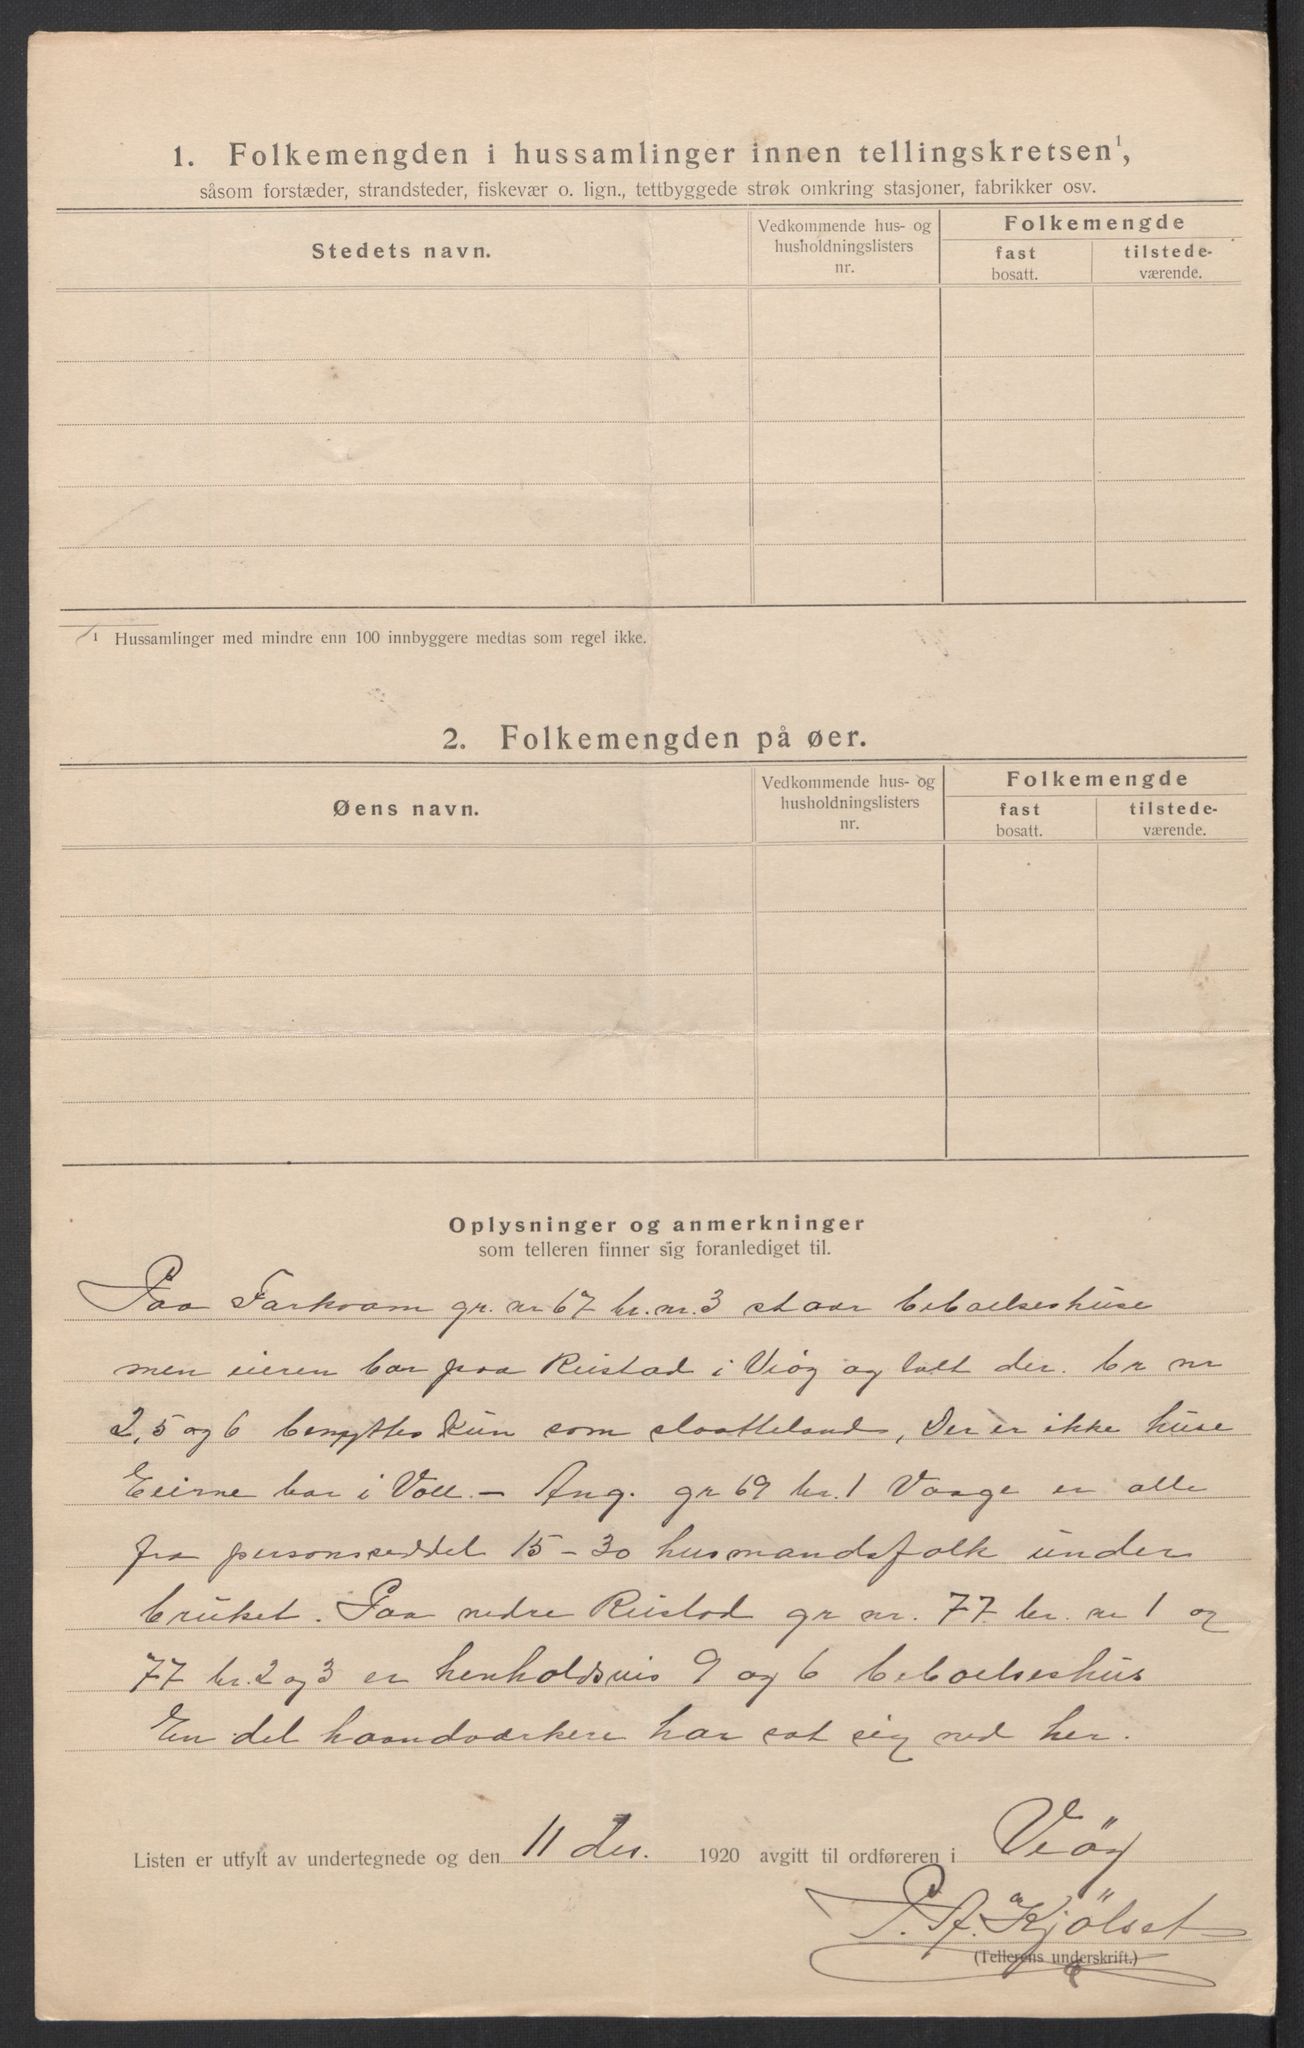 1. Folkemengden i hussamlinger innen tellingskretsen¹,
såsom forstæder, strandsteder, fiskevær o. lign., tettbyggede strøk omkring stasjoner, fabrikker osv.
Stedets navn.
Vedkommende hus- og
husholdningslisters
nr.
Folkemengde
fast
bosatt.
tilstede-
værende.
¹ Hussamlinger med mindre enn 100 innbyggere medtas som regel ikke.
2. Folkemengden på øer.
Øens navn.
Vedkommende hus- og
husholdningslisters
nr.
Folkemengde
fast
bosatt.
tilstede-
værende.
Oplysninger og anmerkninger
som telleren finner sig foranlediget til.
Paa Farkvam gr. nr 67 br. nr. 3 staar beboelseshuse
men eieren bor paa Reistad i Veöy og talt der. br nr
2, 5 og 6 benyttes kun som slaatteland, Der er ikke huse
Eierne bor i Voll. – Ang. gr 69 br. 1 Vaage er alle
fra personseddel 15 – 30 husmandsfolk under
bruket. Paa nedre Reistad gr nr. 77. br. nr 1 og
77 br. 2 og 3 er henholdsvis 9 og 6 beboelseshus
En del haandværkere har sat sig ned her.
Listen er utfylt av undertegnede og den 11 des. 1920 avgitt til ordføreren i Veöy
P. A. Kjölset
(Tellerens underskrift.)